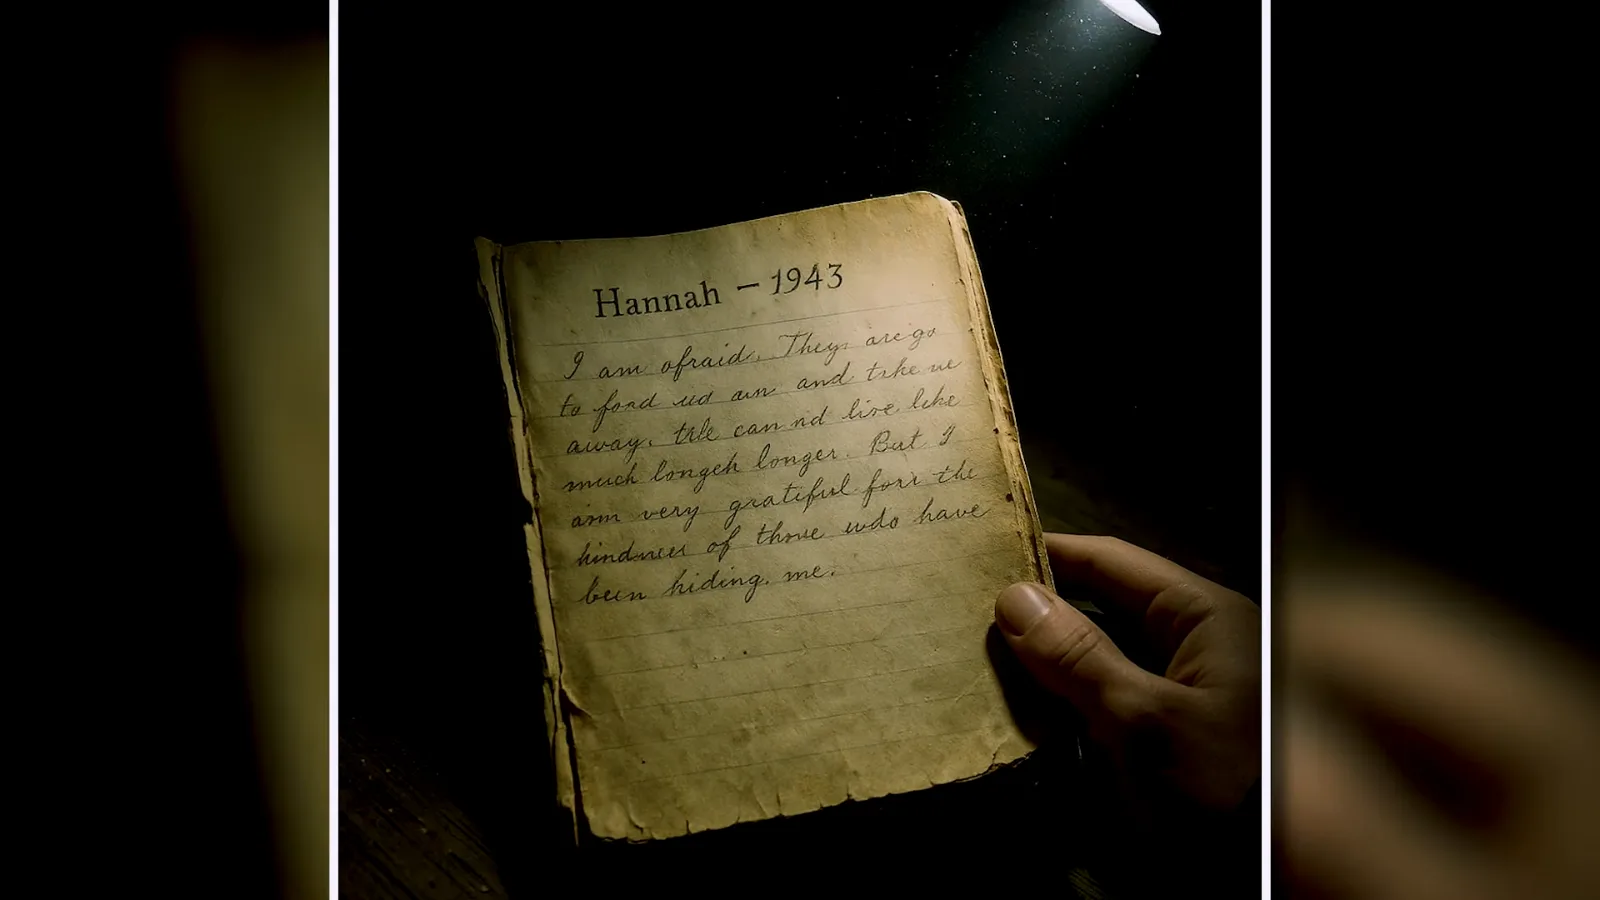 Hannah – 1943
I am afraid. They are go
to foad us am and take ue
away. We can nd live like
much longeh longer. But I
am very grateful forr the
kindnees of those wdo have
been hiding. me.